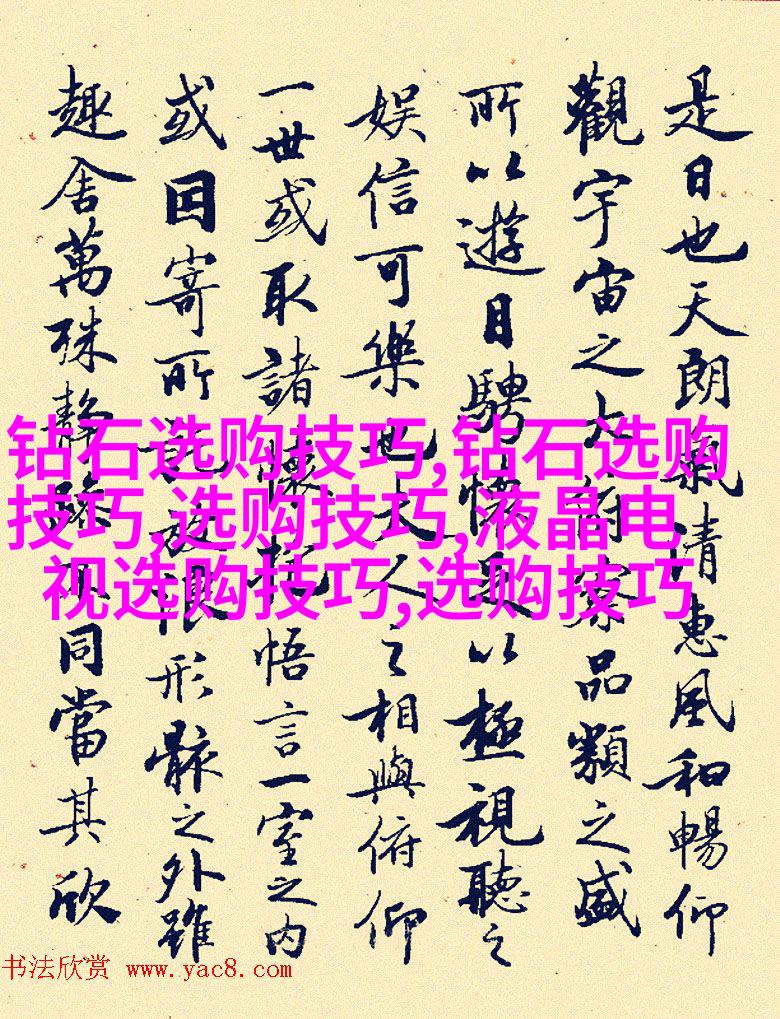 是日也天朗氣清惠風和暢仰
觀宇宙之大俯察品類之盛
所以遊目騁懷足以極視聽之
娱信可樂也夫人之相與俯仰
一世或取諸懷抱悟言一室之内
或因寄所託放浪形骸之外雖
趣舍萬殊静躁不同當其欣
钻石选购技巧,钻石选购
技巧,选购技巧,液晶电
视选购技巧,选购技巧
书法欣赏 www.yac8.com